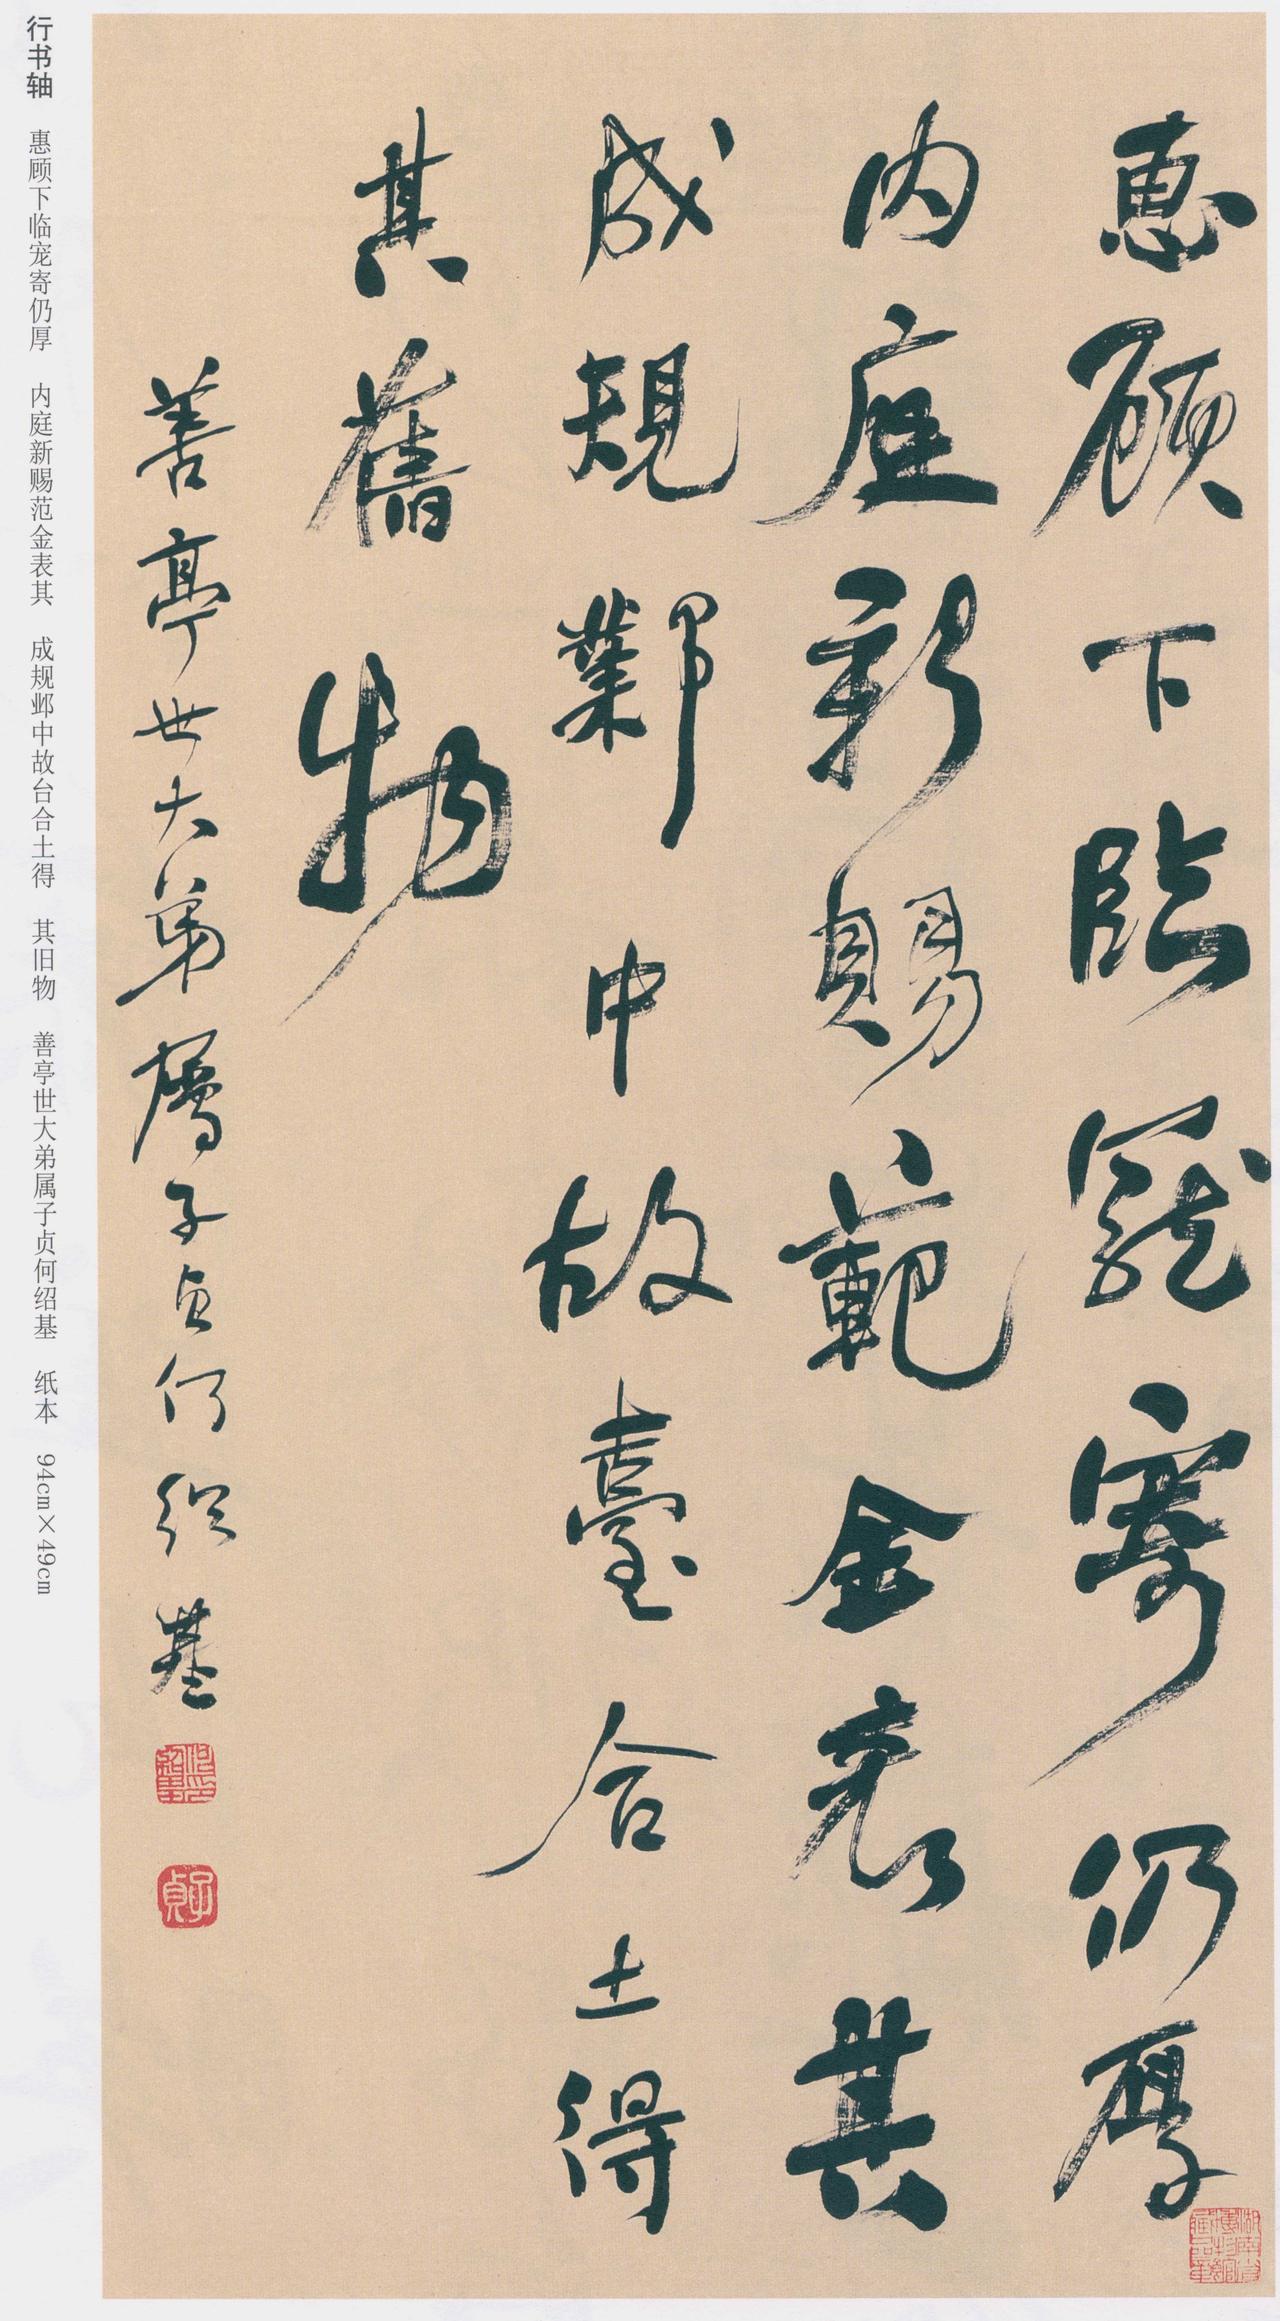 惠顧下臨寵寄仍厚
內庭新賜範金表其
成規鄴中故臺合土得
其舊物
善亭世大弟屬子貞何紹基
子貞
行书轴 惠顾下临宠寄仍厚 内庭新赐范金表其 成规邺中故台合土得 其旧物 善亭世大弟属子贞何绍基 纸本 94cm×49cm